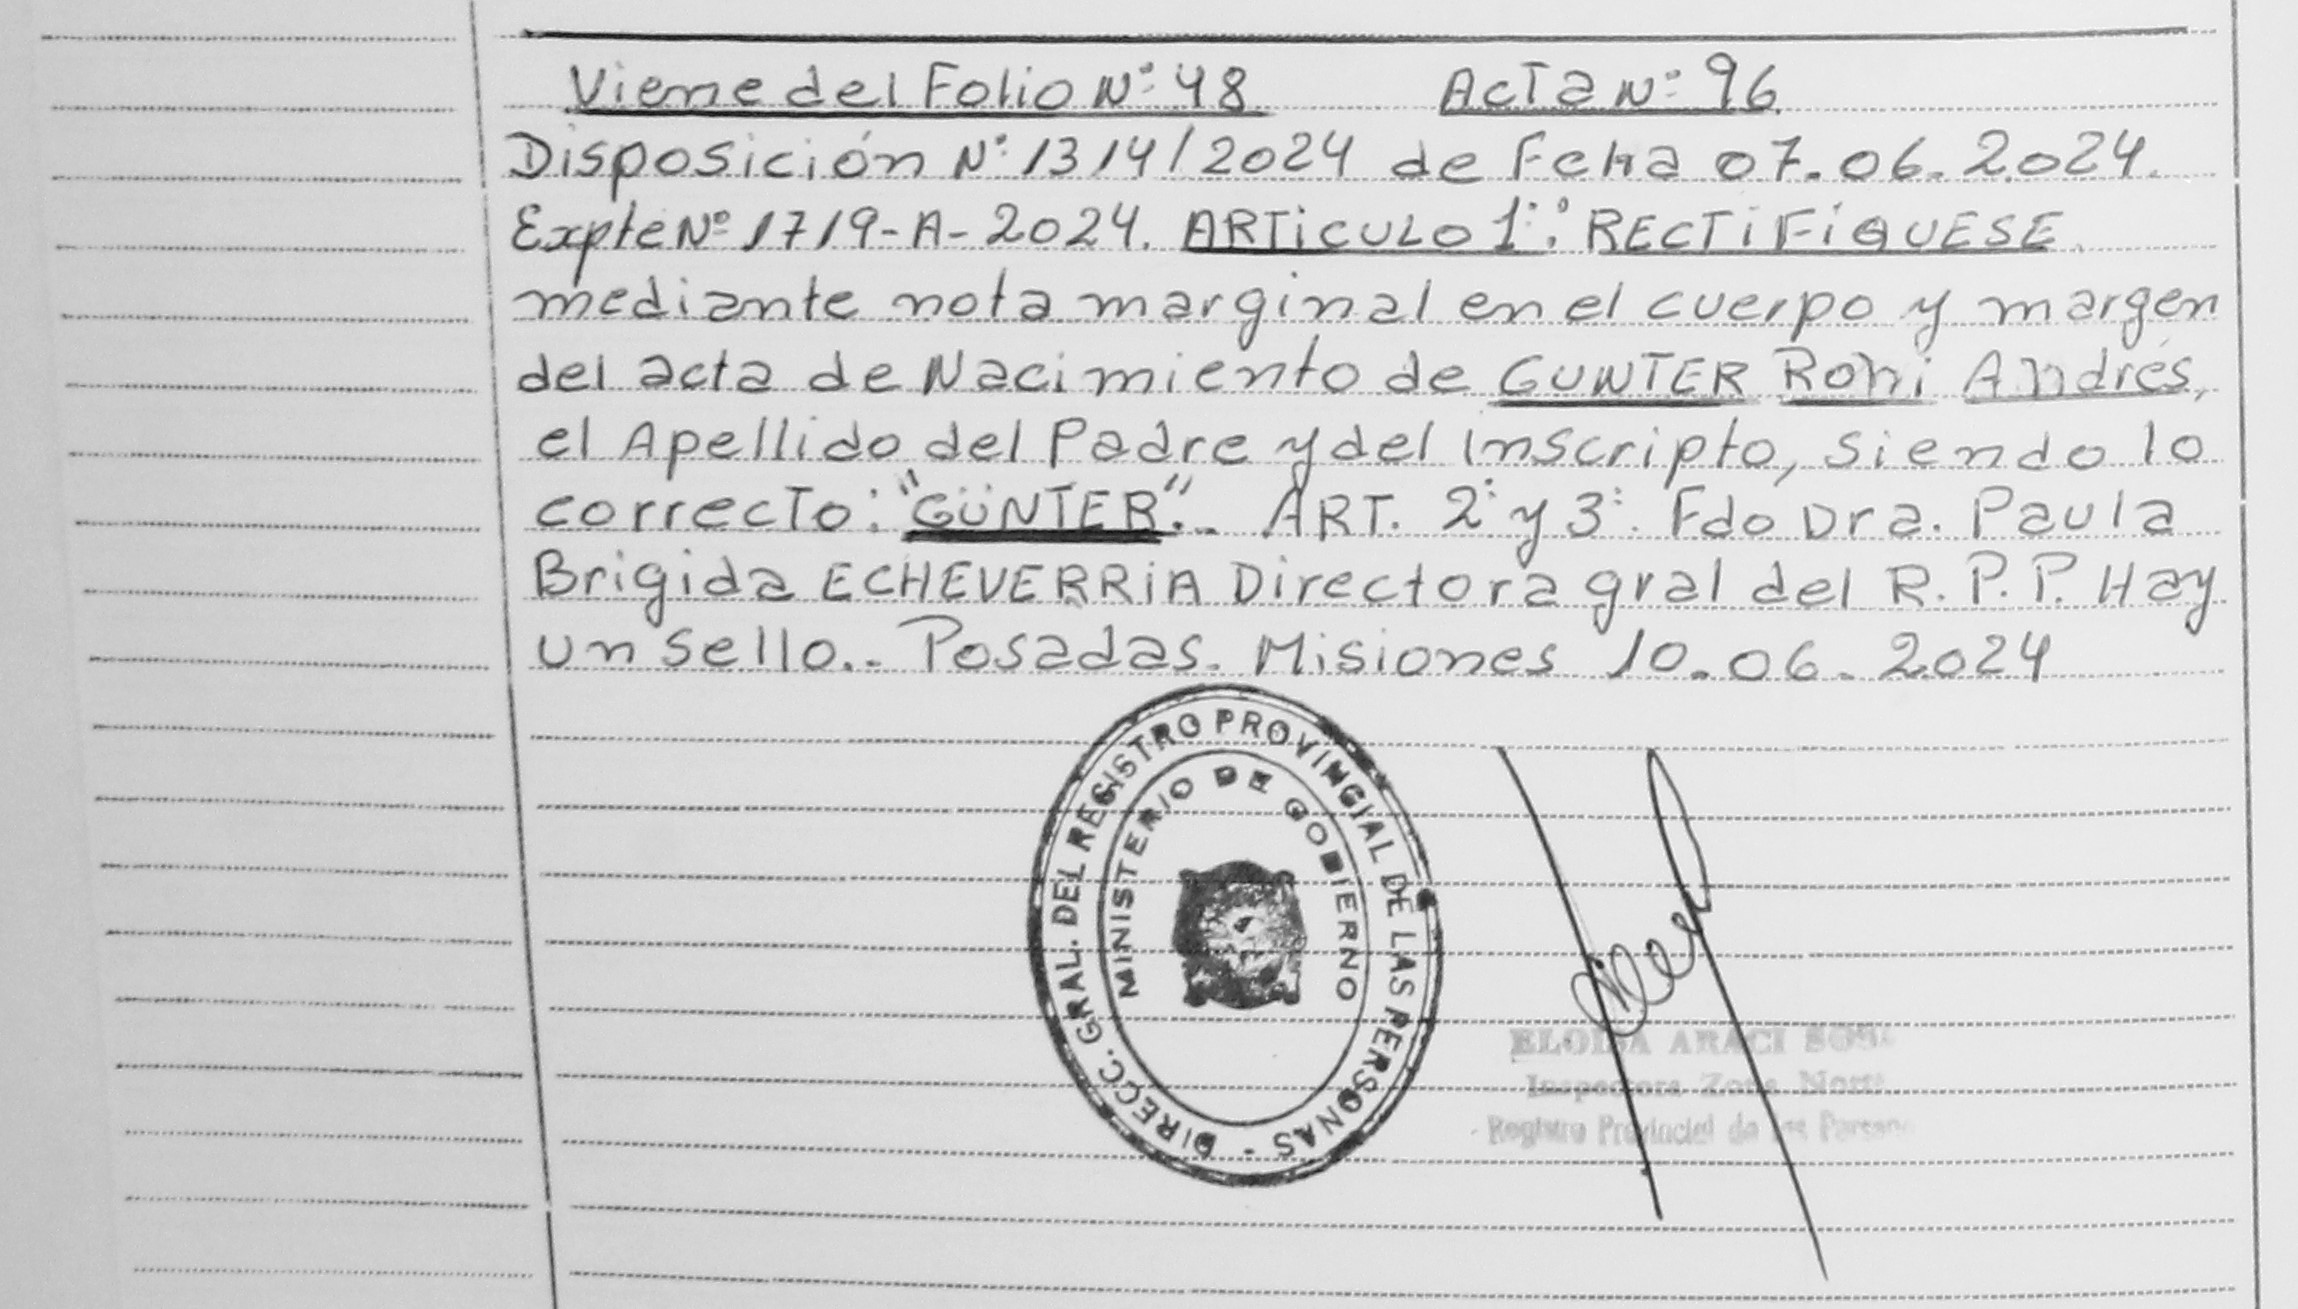 Viene del Folio Nº: 48 Acta Nº: 96
Disposición Nº: 1314/2024 de Fcha 07.06.2024.
Expte Nº 1719-A-2024. ARTiCULO 1º: RECTiFiQUESE
mediante nota marginal en el cuerpo y margen
del acta de Nacimiento de GUNTER Roni Andrés,
el Apellido del Padre y del Inscripto, siendo lo
correcto: "GÜNTER".- ART. 2º y 3º. Fdo Dra. Paula
Brigida ECHEVERRiA Directora gral del R.P.P. Hay
un sello.. Posadas. Misiones 10.06.2024
DIRECC. GRAL. DEL REGISTRO PROVINCIAL DE LAS PERSONAS -
MINISTERIO DE GOBIERNO
ELOISA ARACI
Inspectora Zona Norte
Registro Provincial de las Personas